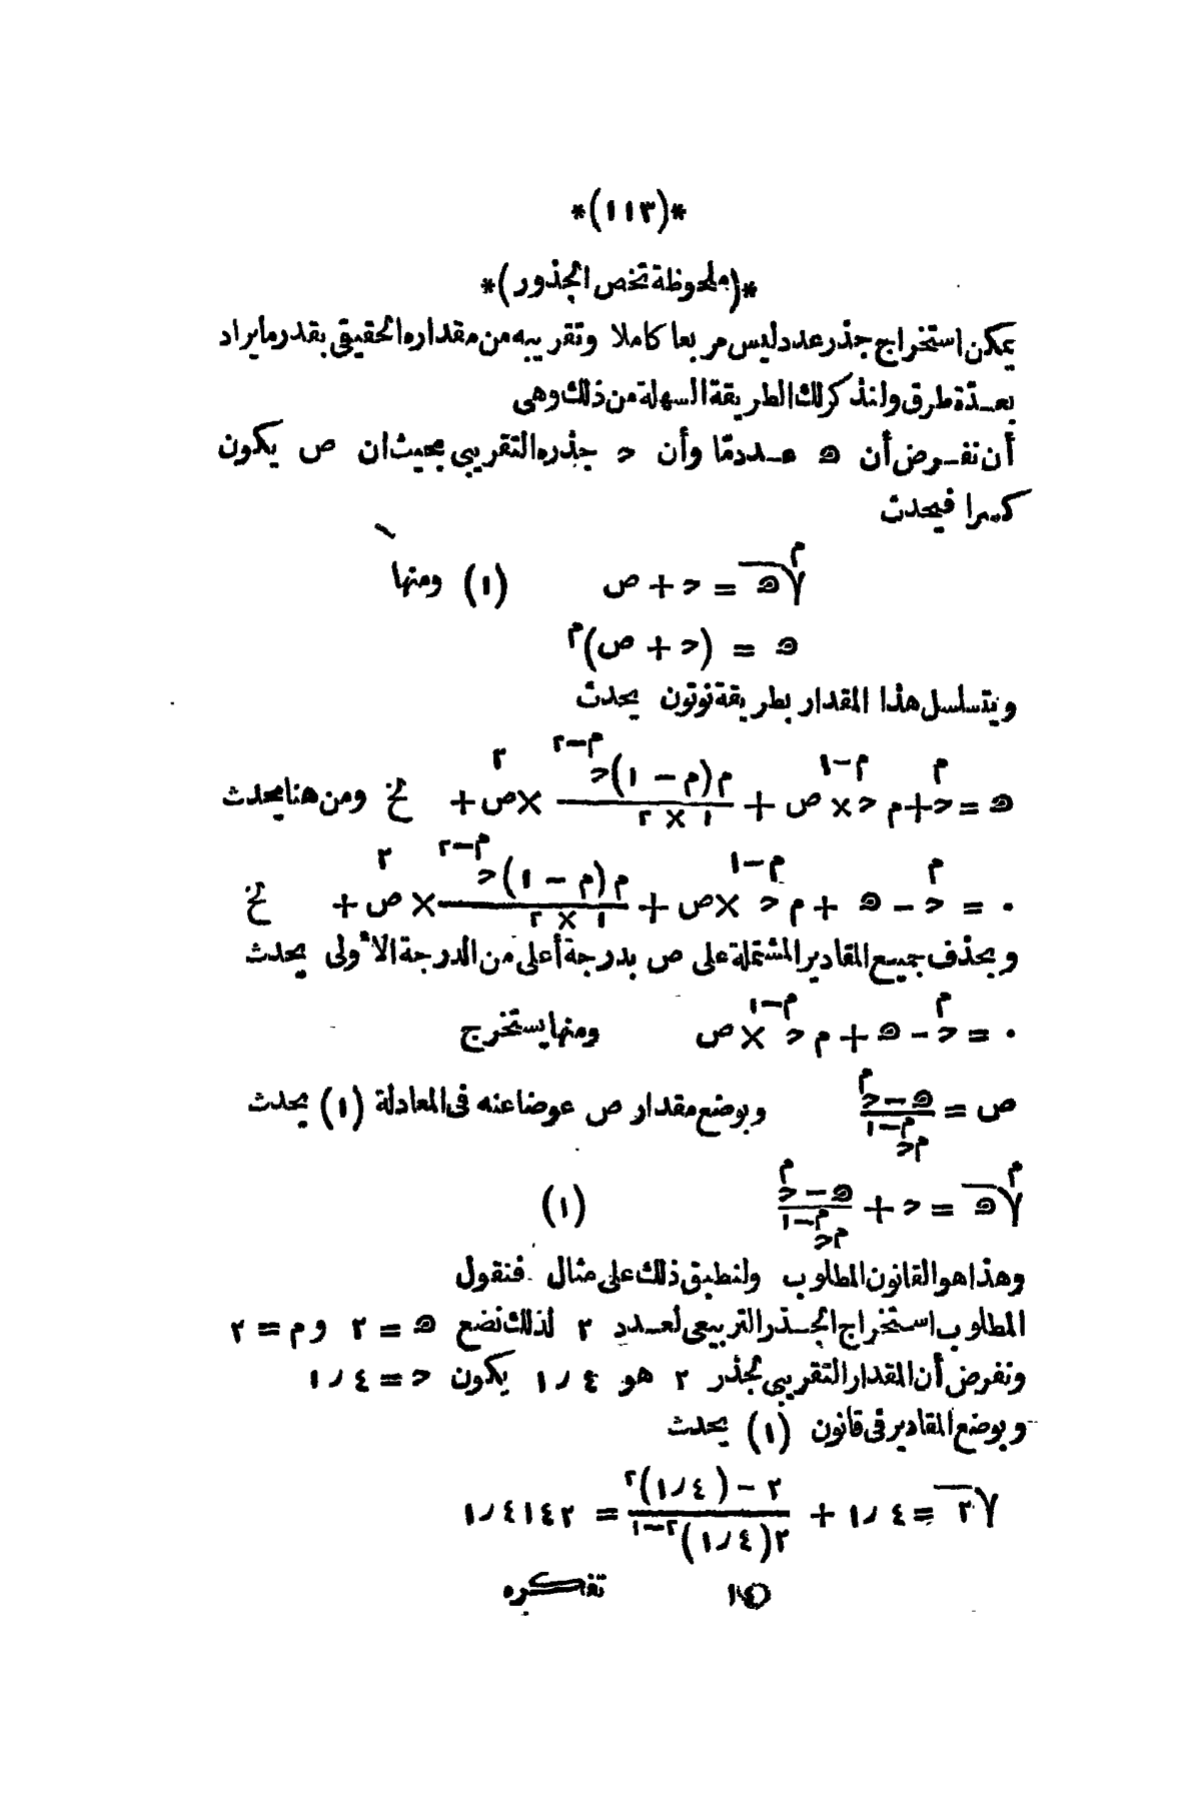 *(١١٣)*
*(ملحوظة تخص الجذور)*
يمكن استخراج جذر عدد ليس مربعا كاملا وتقريبه من مقداره الحقيقي بقدر ما يراد
بعدّة طرق ولنذكر لك الطريقة السهلة من ذلك وهى
أن نفرض أن ه عدد مّا وأن ح جذره التقريبى بحيث ان ص يكون
كسرا فيحدث
م√ه = ح + ص (١) ومنها
ه = (ح + ص)^م
ويتسلسل هذا المقدار بطريقة نوتون يحدث
ه = ح^م + م ح^(م−١) × ص + م(م − ١)ح^(م−٢) / ١ × ٢ × ص^٢ + الخ ومن هنا يحدث
٠ = ح^م − ه + م ح^(م−١) × ص + م(م − ١)ح^(م−٢) / ١ × ٢ × ص^٢ + الخ
وبحذف جميع المقادير المشتملة على ص بدرجة أعلى من الدرجة الأولى يحدث
٠ = ح^م − ه + م ح^(م−١) × ص ومنها يستخرج
ص = ه − ح^م / م ح^(م−١) وبوضع مقدار ص عوضا عنه فى المعادلة (١) يحدث
م√ه = ح + ه − ح^م / م ح^(م−١) (١)
وهذا هو القانون المطلوب ولنطبق ذلك على مثال فنقول
المطلوب استخراج الجذر التربيعى لعدد ٢ لذلك نضع ه = ٢ و م = ٢
ونفرض أن المقدار التقريبى لجذر ٢ هو ١٫٤ يكون ح = ١٫٤
وبوضع المقادير فى قانون (١) يحدث
√٢ = ١٫٤ + ٢ − (١٫٤)^٢ / ٢(١٫٤)^(٢−١) = ١٫٤١٤٢
تفكره